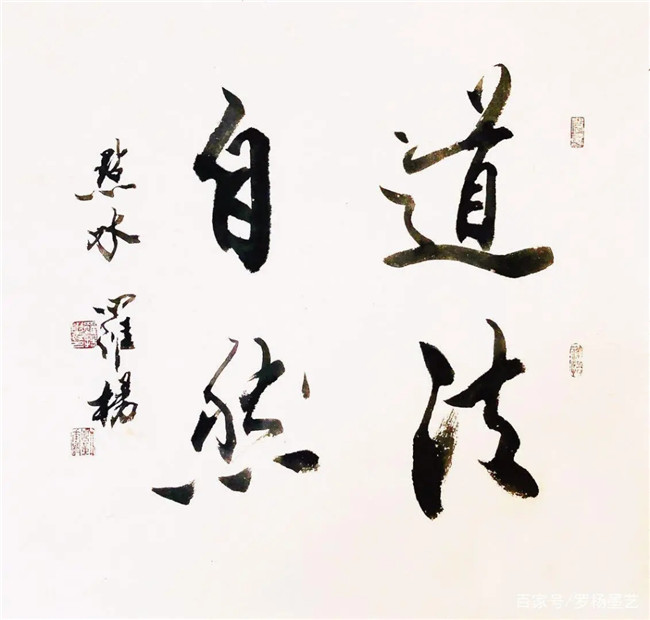 道法
自然
點水 羅楊
百家号/罗杨墨艺